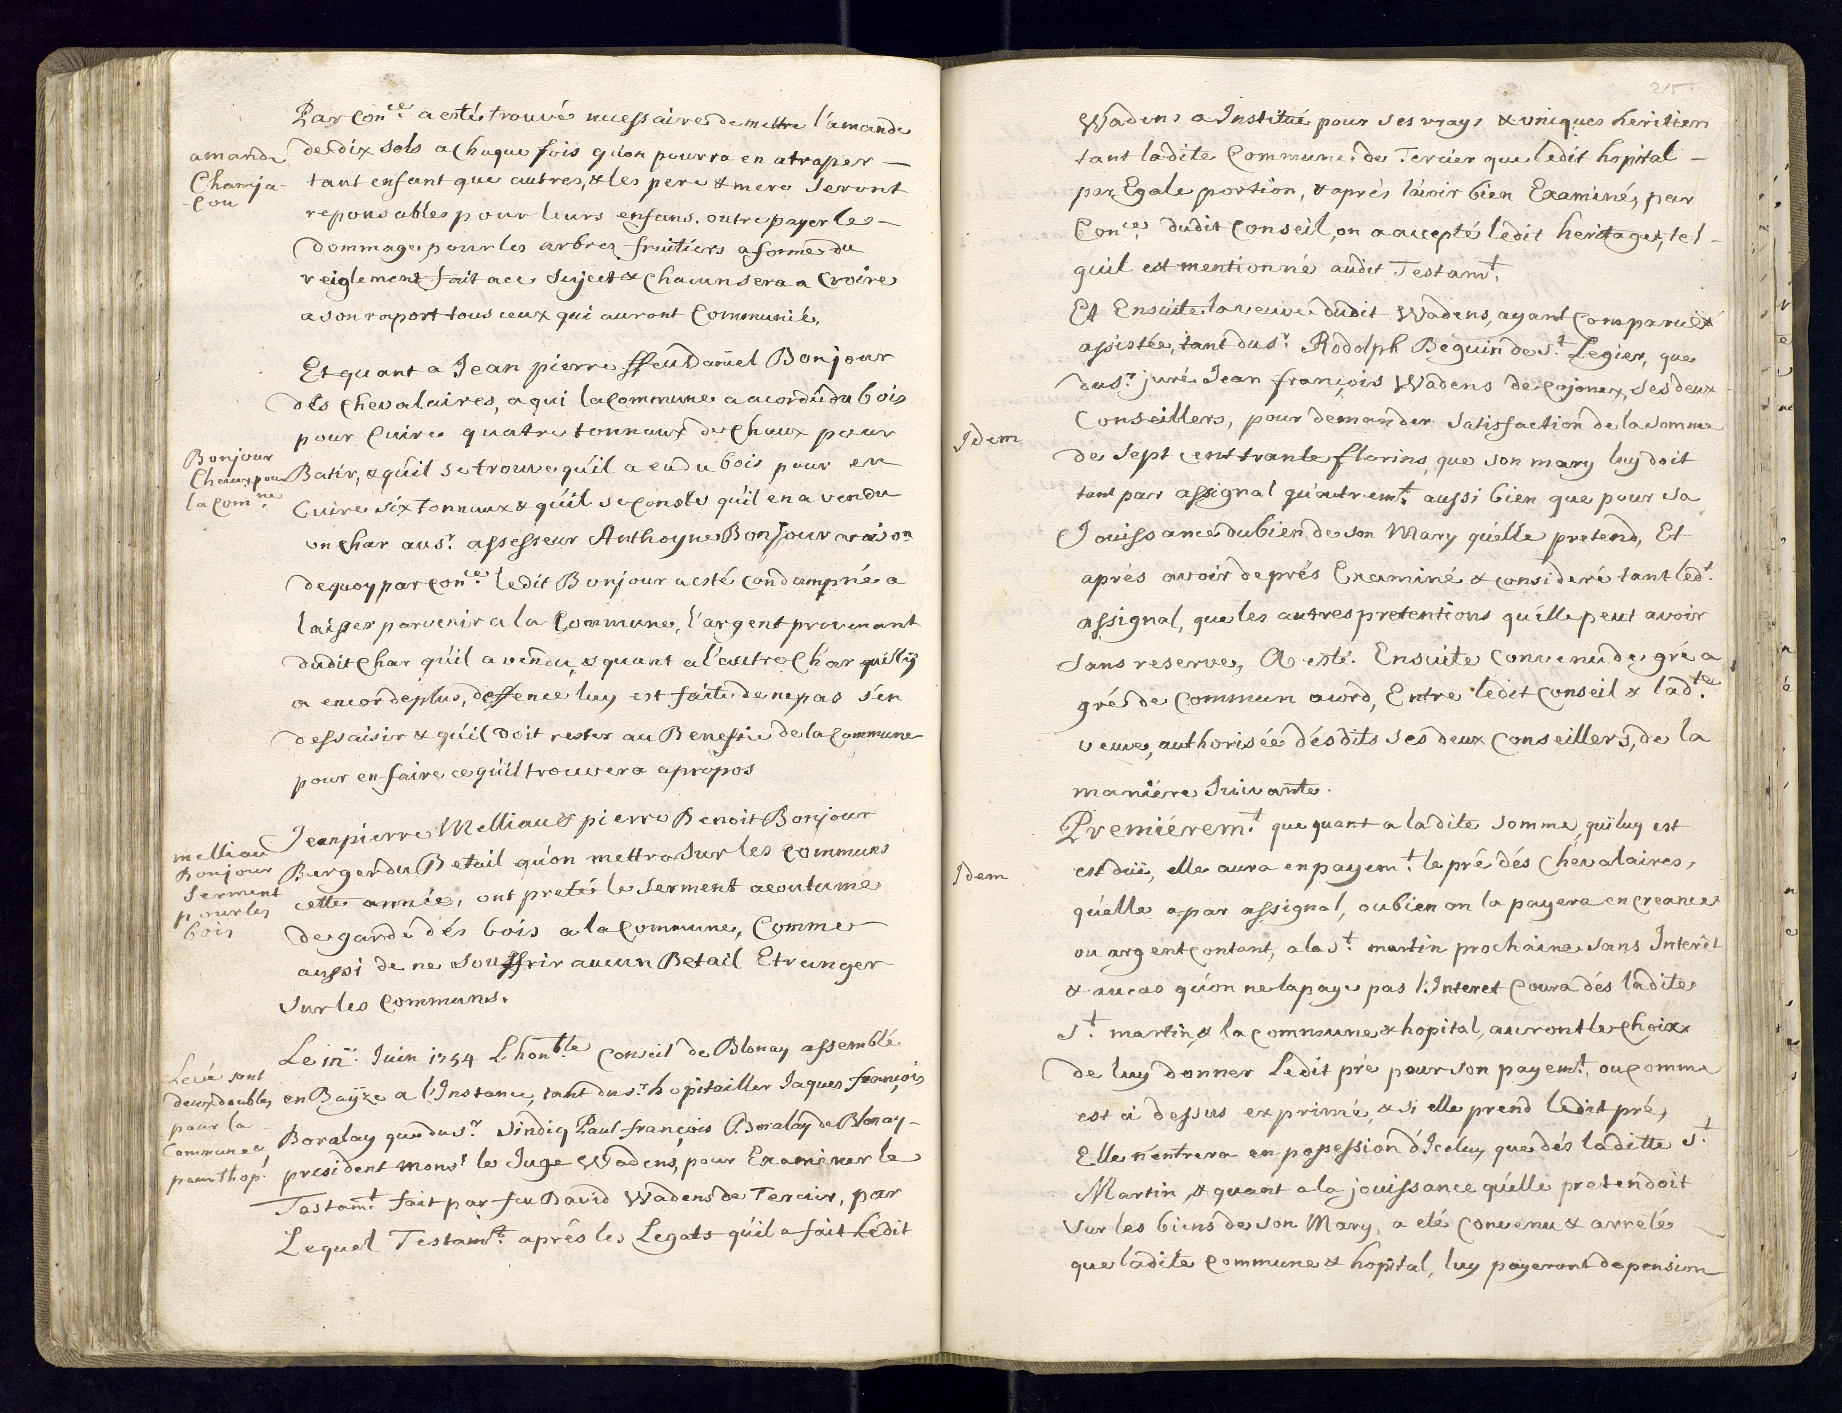 Par Con.ce a esté trouvé necessaire de mettre l'amande
de dix sols a chaque fois qu'on pourra en atraper —
amande
Champa-
-con
tant enfant que autres, & les pere & mere seront
reponsables pour leurs enfans, outre payer le —
dommage pour les arbres fruitiers a forme du
reiglement fait a ce suject & chacun sera a Croire
a son raport tous ceux qui auront Communié.
Et quant a Jean pierre ffeu Daniel Bonjour
dés chevalaires, a qui la Commune a acordé du bois
pour Cuire quatre tonnaux de Chaux pour
Bonjour
Chaux pou
la Com.ne
Batir, & qu'il se trouve qu'il a eu du bois pour en
Cuire six tonnaux & qu'il se conste qu'il en a vendu
un char au s.r assesseur Anthoyne Bonjour a raison
de quoy par Con.ce ledit Bonjour a esté condampné a
laisser parvenir a la Commune, l'argent provenant
dudit Char qu'il a vendu, & quant a l'autre Char qu'il y
a encor de plus, deffence luy est faite de ne pas s'en
dessaisir & qu'il doit rester au Benefice de la Commune
pour en faire ce qu'il trouvera a propos
Jean pierre Melliau & pierre Benoit Bonjour
melliau
Bonjour
serment
pour les
bois
Berger du Betail qu'on mettra sur les communs
cette année, ont preté le serment acoutumé
de garde dés bois a la Commune, Comme —
aussi de ne souffrir aucun Betail Etranger
sur les communs.
Le in.. Juin 1754 L'hon.ble Conseil de Blonay assemblé
Levé sont
deux doubles
pour la
Commune &
pour l'hop.l
en Bayze a l'Instance, tant du s.r hopitailler Jaques françois
Boralay que du s.r Sindiq Paul françois Boralay de Blonay —
president Mons.r le Juge Wadens, pour Examiner le
Testam.t fait par feu David Wadens de Tercier, par
Lequel Testam.t aprés les Legats qu'il a fait Ledit
215.
Wadens a Institué pour ses vrays & uniques heritiers
tant ladite Commune de Tercier que ledit hopital —
par Egale portion, & aprés l'avoir bien Examiné, par
Con.ce dudit Conseil, on a accepté ledit heritage, tel —
qu'il est mentionné audit Testam.t.
Et Ensuite la veuve dudit Wadens, ayant Comparu &
assistée, tant du s.r Rodolph Béguin de S.t Legier, que
du s.r juré Jean françois Wadens de Cojonex, ses deux
Conseillers, pour demander satisfaction de la somme
Idem
de sept cent trante florins, que son mary luy doit
tant par assignal qu'autrem.t. aussi bien que pour sa
Jouissance du bien de son Mary qu'elle pretend, Et
aprés avoir de prés Examiné & consideré tant led.t
assignal, que les autres pretentions qu'elle peut avoir
sans reserve, A esté. Ensuite convenu de gré a
gré & de commun acord, Entre ledit Conseil & lad.te
veuve, authorisée désdits ses deux Conseillers, de la
maniére Suivante.
Premiérem.t que quant a ladite somme, qui luy est
Idem
est duë, elle aura en payem.t le pré dés Chevalaires,
qu'elle a par assignal, ou bien on la payera en creance
ou argent contant, a la S.t martin prochaine sans Interêt
& au cas qu'on ne la paye pas l'Interet Coura dés ladite
S.t martin, & la commune & hopital, auront le choix
de luy donner Ledit pré pour son payem.t, ou comme
est ci dessus exprimé, & si elle prend ledit pré,
Elle n'entrera en possession d'Iceluy, que dés laditte S.t
Martin, & quant a la jouissance qu'elle pretendoit
sur les biens de son Mary, a eté convenu & arreté
que ladite commune & hopital, luy payeront de pension